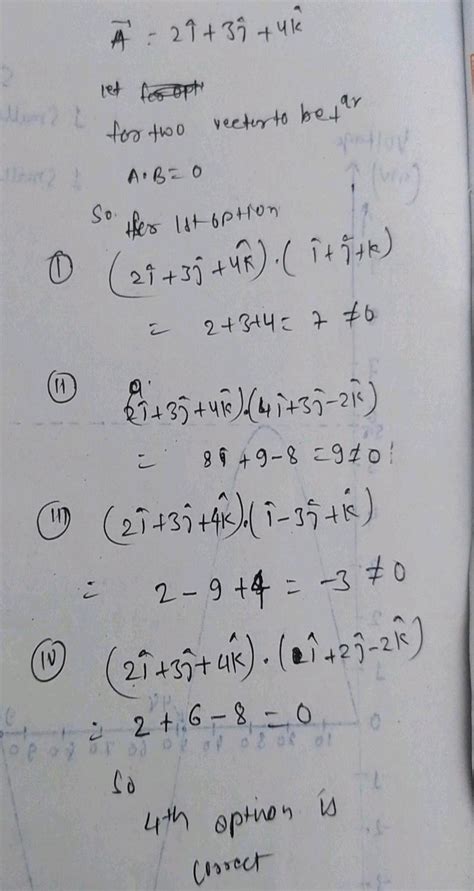 A⃗ = 2î + 3ĵ + 4k̂
let
for two vector to be ⊥ar
A·B = 0
So. for 1st option
(I) (2î + 3ĵ + 4k̂)·(î + ĵ + k)
= 2+3+4 = 7 ≠ 0
(II) (2î + 3ĵ + 4k̂)·(4î + 3ĵ - 2k̂)
= 8î + 9 - 8 = 9 ≠ 0
(III) (2î + 3ĵ + 4k̂)·(î - 3ĵ + k̂)
= 2 - 9 + 4 = -3 ≠ 0
(IV) (2î + 3ĵ + 4k̂)·(î + 2ĵ - 2k̂)
= 2 + 6 - 8 = 0
So
4th option is
correct